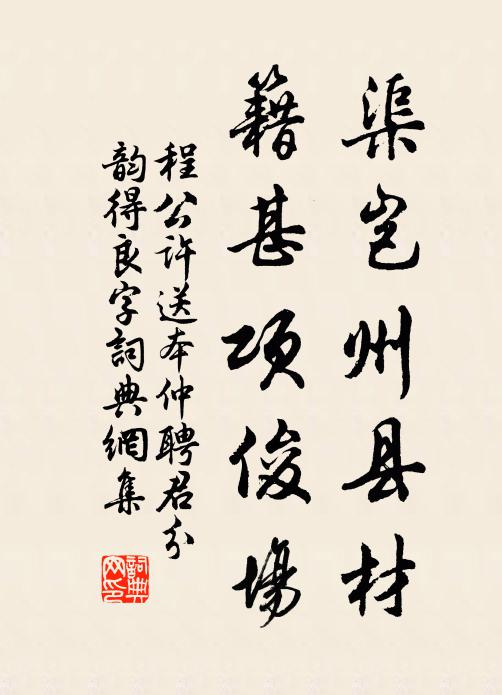 渠岂州县材
籍甚项俊場
程公许送本仲聘君分
韵得良字詞典網集
詞典网印